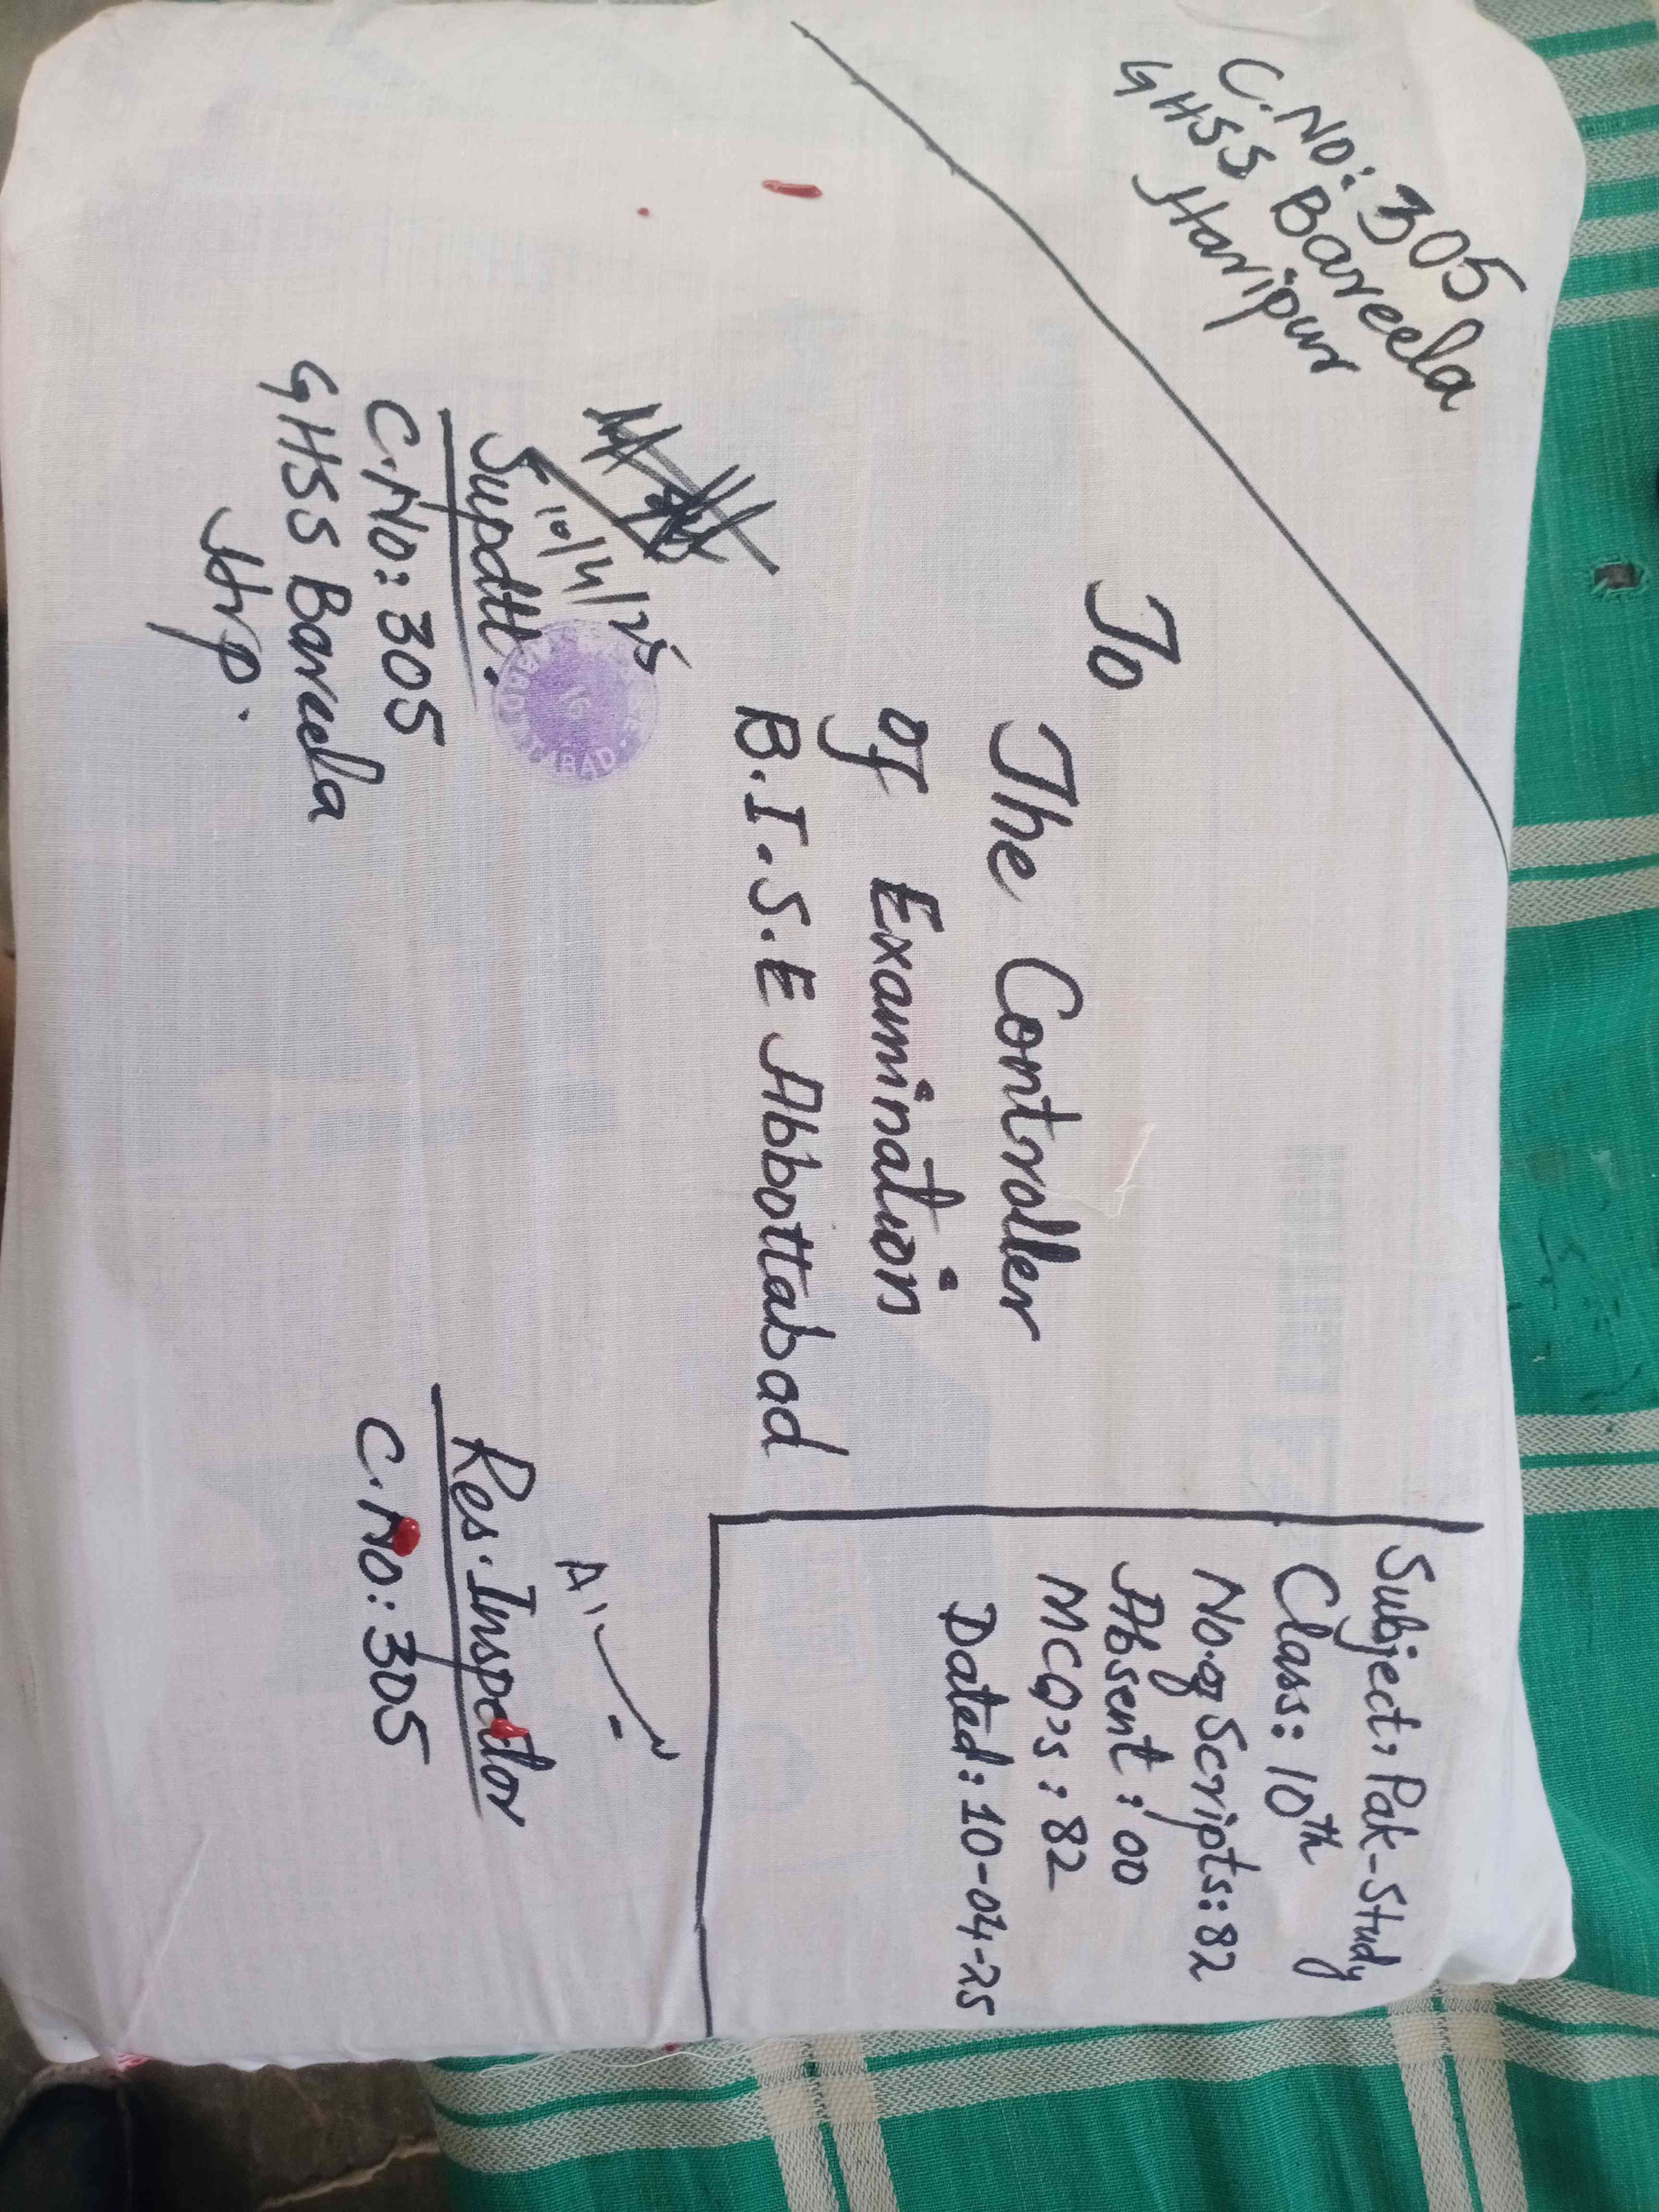 C.No: 305
GHSS Bareela
Haripur
Subject: Pak-Study
Class: 10th
No.of Scripts: 82
Absent: 00
MCQ's: 82
Dated: 10-04-25
To
The Controller
of Examination
B.I.S.E Abbottabad
10/4/25
Supdtt.
C.No: 305
GHSS Bareela
Hrp.
Res. Inspector
C.No: 305